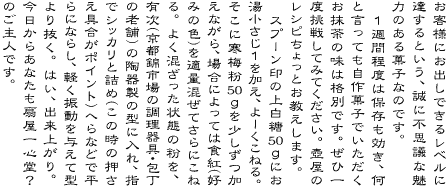 お客様にお出しできるレベルに
達するという、誠に不思議な魅
力のある菓子なのです。
　１週間程度は保存も効き、何
と言っても自作菓子でいただく
お抹茶の味は格別です。ぜひ一
度挑戦してみてください。壺屋の
レシピちょっとお教えします。
　スプーン印の上白糖50gにお
湯小さじ１を加え、よーくこねる。
そこに寒梅粉50gを少しずつ加
えながら、場合によっては食紅(好
みの色)を適量混ぜてさらにこね
る。よく混ざった状態の粉を、
有次(京都錦市場の調理器具・包丁
の老舗)の陶器製の型に入れ、指
でシッカリと詰め(この時の押さ
え具合がポイント)へらなどで平
らにならし、軽く振動を与えて型
より抜く。はい、出来上がり。
今日からあなたも扇屋一心堂？
のご主人です。